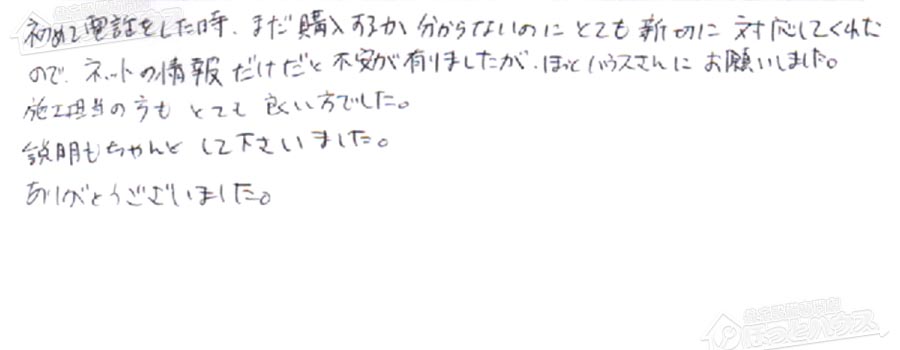 初めて電話をした時、まだ購入するか分からないのにとても新切に対応してくれた
ので、ネットの情報だけだと不安が有りましたが、ほっとハウスさんにお願いしました。
施工担当の方もとても良い方でした。
説明もちゃんとして下さいました。
ありがとうございました。
ほっとハウス